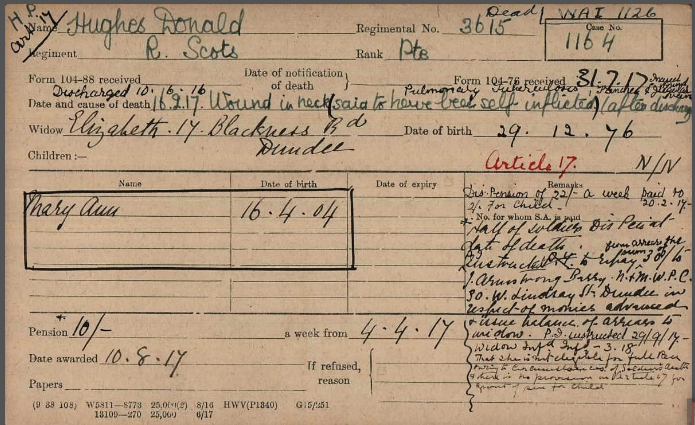 H.P.
Art. 17
Dead
WAI 1126
Name Hughes Donald
Regimental No. 3615
Case No.
1164
Regiment R. Scots
Rank Pte
Form 104-88 received
Date of notification of death
Form 104-76 received 31.7.17
Discharged 10.16.16
Pulmonary Tuberculosis
Date and cause of death 16.2.17. Wound in neck (said to have been self inflicted) (after discharge
Widow Elizabeth. 17. Blackness Rd
Dundee
Date of birth 29.12.76
Children :—
Article 17.
N/N
Name
Date of birth
Date of expiry
Remarks
Mary Ann
16.4.04
Dis. Pension of 22/- a week paid to
2/- For Child. 20.2.17-
No. for whom S.A. is paid
* Half of soldiers Dis Pen at
date of death.
from arrears of the
Instructed to repay 30/- to
J. Armstrong Barry. N.M.W.P.C.
30. W. Lindsay St. Dundee in
respect of monies advanced
& issue balance of arrears to
widow. P.I. instructed 29/9/17-
Widow Infd 3.18
That she is not eligible for full Pen
owing to circumstances of Soldiers death
& there is no provision in Article 17 for
grant of pen for child
Pension * 10/-
a week from 4.4.17
Date awarded 10.8.17
If refused, reason
Papers
(9 38 108) W5811—8773 25,000(2) 8/16 HWV(P1340) G15/251
13109—270 25,000 6/17